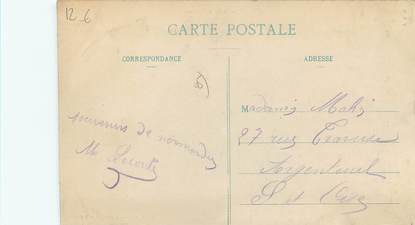 12_6
CARTE POSTALE
CORRESPONDANCE
ADRESSE
souvenirs de normandie
Madame
27 rue
Argenteuil
S et Oise